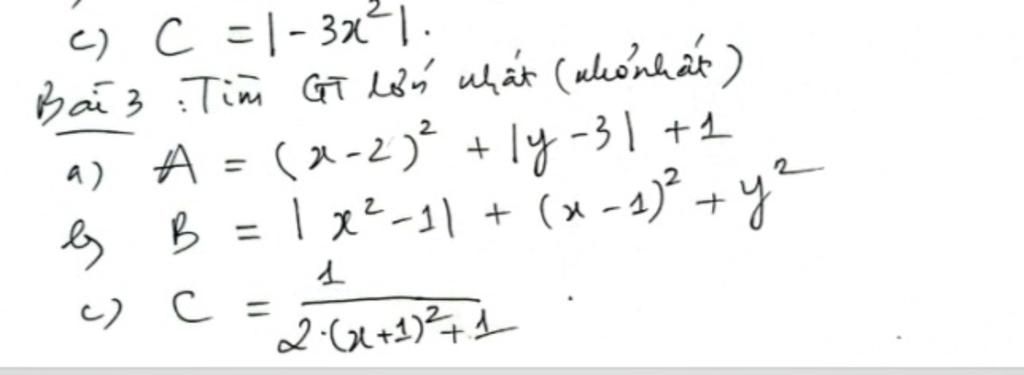 c) C = |-3x²|.
Bài 3: Tìm GT lớn nhất (nhỏ nhất)
a) A = (x-2)² + |y-3| + 1
b) B = |x²-1| + (x-1)² + y²
c) C = 1/(2.(x+1)²+1)